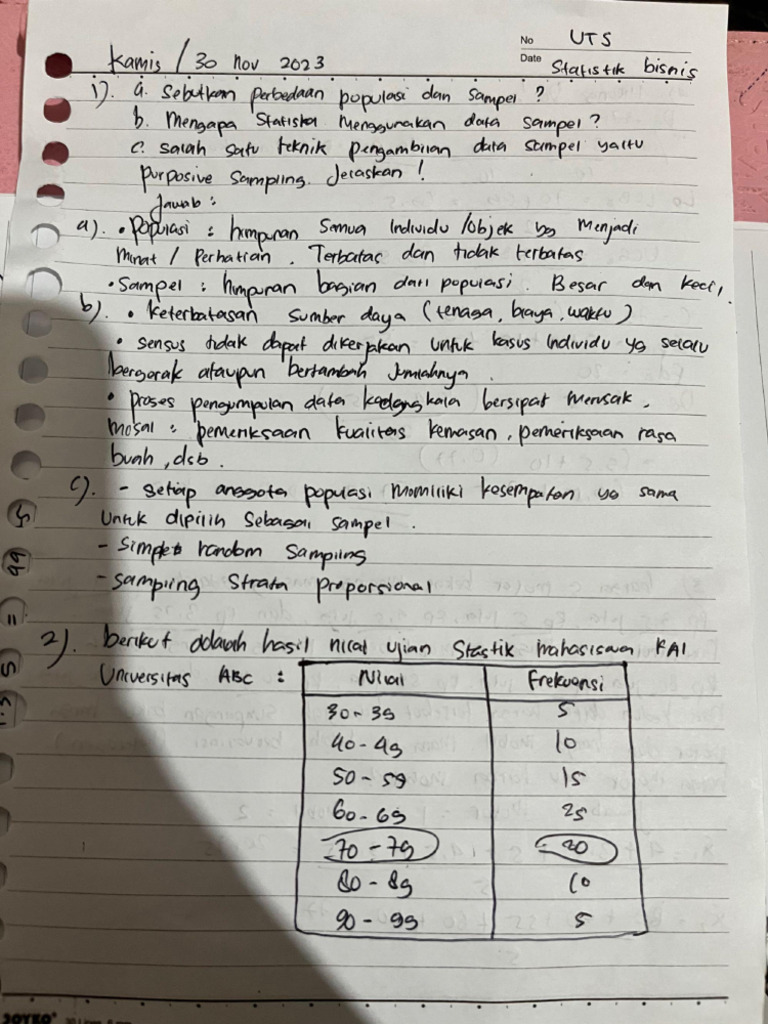 No UTS
Kamis / 30 Nov 2023
Date Statistik bisnis
1). a. Sebutkan perbedaan populasi dan sampel ?
b. Mengapa Statistika Menggunakan data sampel ?
c. salah satu teknik pengambilan data sampel yaitu
purposive sampling. Jelaskan !
Jawab :
a). • Populasi : himpunan semua individu / objek yg menjadi
minat / perhatian . Terbatas dan tidak terbatas
• Sampel : himpunan bagian dari populasi . Besar dan kecil,
b). • keterbatasan sumber daya (tenaga, biaya, waktu)
• sensus tidak dapat dikerjakan untuk kasus individu yg selalu
bergerak ataupun bertambah jumlahnya .
• proses pengumpulan data kadangkala bersipat merusak .
misal : pemeriksaan kualitas kemasan , pemeriksaan rasa
buah , dsb .
c). - setiap anggota populasi memiliki kesempatan yg sama
untuk dipilih sebagai sampel .
- Simple random Sampling
- Sampling Strata Proporsional
2). berikut adalah hasil nilai ujian Stastik mahasiswa KA1
Universitas ABC :
Nilai Frekuensi
30 - 39 5
40 - 49 10
50 - 59 15
60 - 69 25
70 - 79 20
80 - 89 10
90 - 99 5
JOYKO